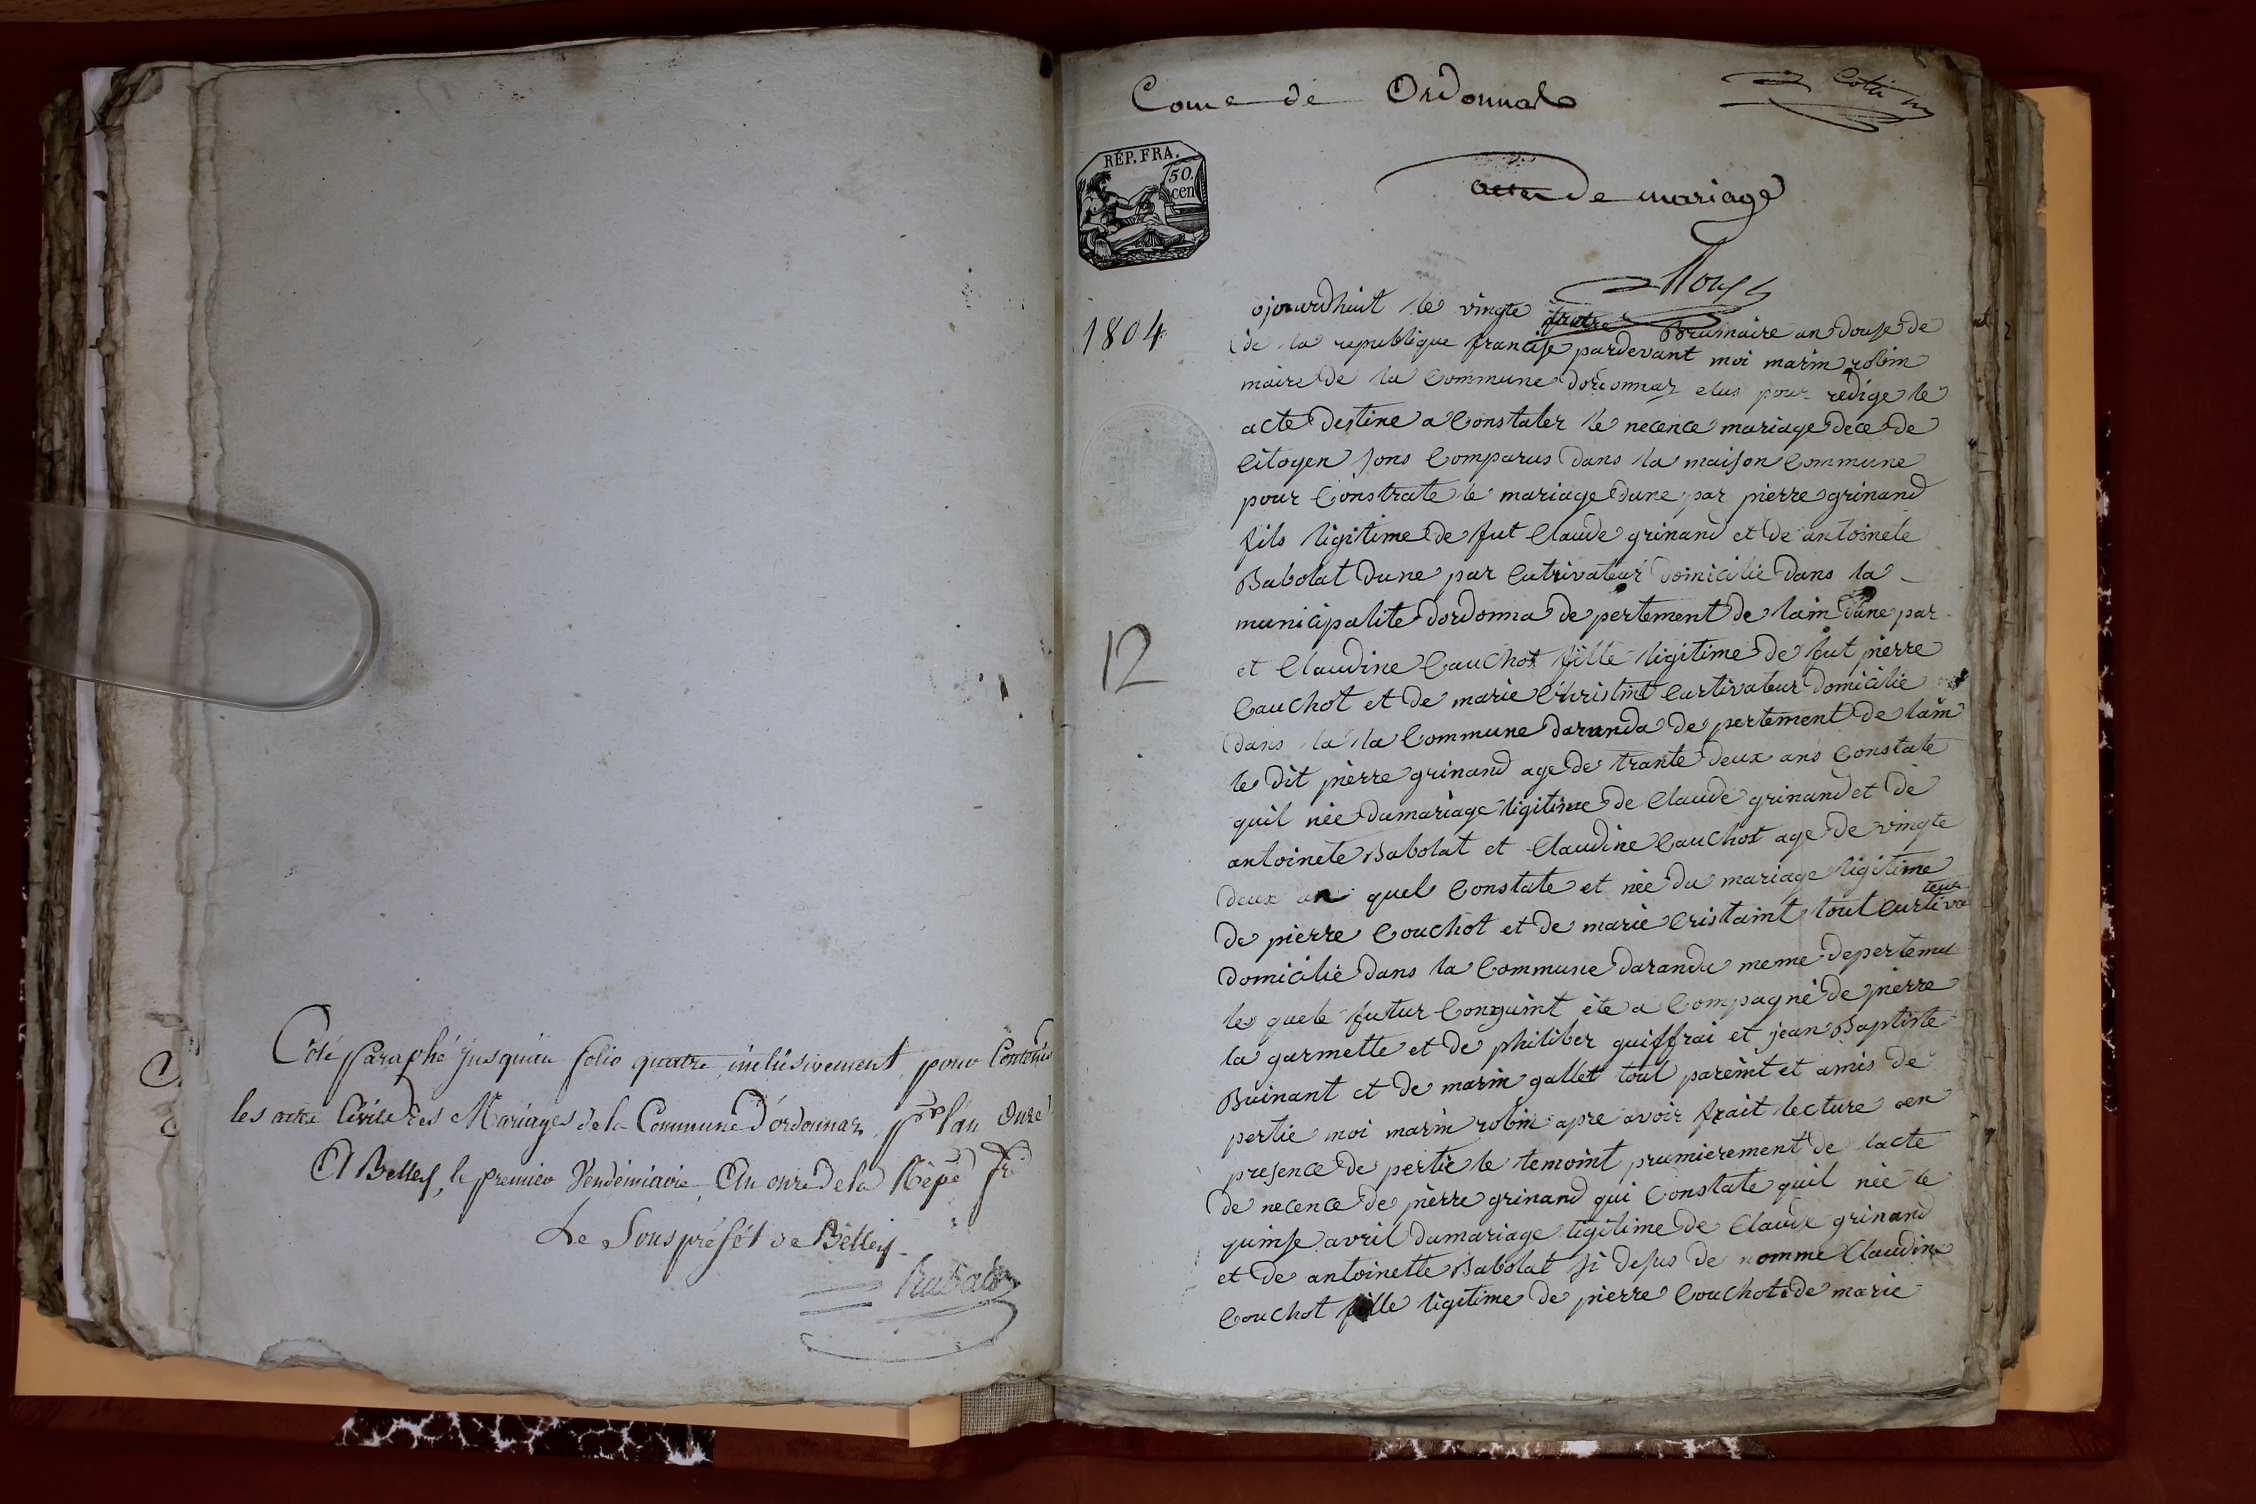 Coté Paraphé jusquiau folio quatre inclusivement pour Contenir
les acte Civile des Mariages de la Commune D'ordonnaz pr l'an Onze
A Belley, le premier Vendemiaire, An onze de la Répe fr
Le Sous préfét de Bélley
Rubat
Come de Ordonnas
RÉP. FRA.
50.
cen
acte de mariage
1804
ojourdhuit le vingte quatre Brumaire an douse de
de la republique francise pardevant moi marin robin
maire de la Commune dordonnaz elus pour redige le
acte destine a Constater le necence mariage dece de
Citoyen sons Comparus dans la maison Commune
pour Constrate le mariage dune par pierre grinand
fils ligitime de fut Claude grinand et de antoinete
Babolat dune par Cutrivateur domicilie dans la
municipalite dordonna de pertement de lain dune par
et Claudine Cauchot fille ligitime de fut pierre
Cauchot et de marie Christint Curtivateur domicilie
dans la la Commune daranda de pertement de lain
le dit pierre grinand age de trante deux ans Constate
quil née du mariage ligitime de Claude grinand et de
antoinete Babolat et Claudine Cauchot age de vingte
deux an quel Constate et née du mariage ligitime
de pierre Couchot et de marie Cristaint tout Curtivateur
domicilié dans la Commune daranda meme depertemu
les quele futur Conguint ète a Compagné de pierre
la garmette et de philiber guiffrai et jean Baptiste
Buinant et de marin gallet tout pareint et amis de
pertie moi marin robin apre avoir frait lecture aen
presence de pertie le temoint prumierement de lacte
de necence de pierre grinand qui Constate quil née le
quinse avril du mariage ligitime de Claude grinand
et de antoinette Babolat si desus de nomme Claudine
Couchot fille ligitime de pierre Couchot e de marie
12